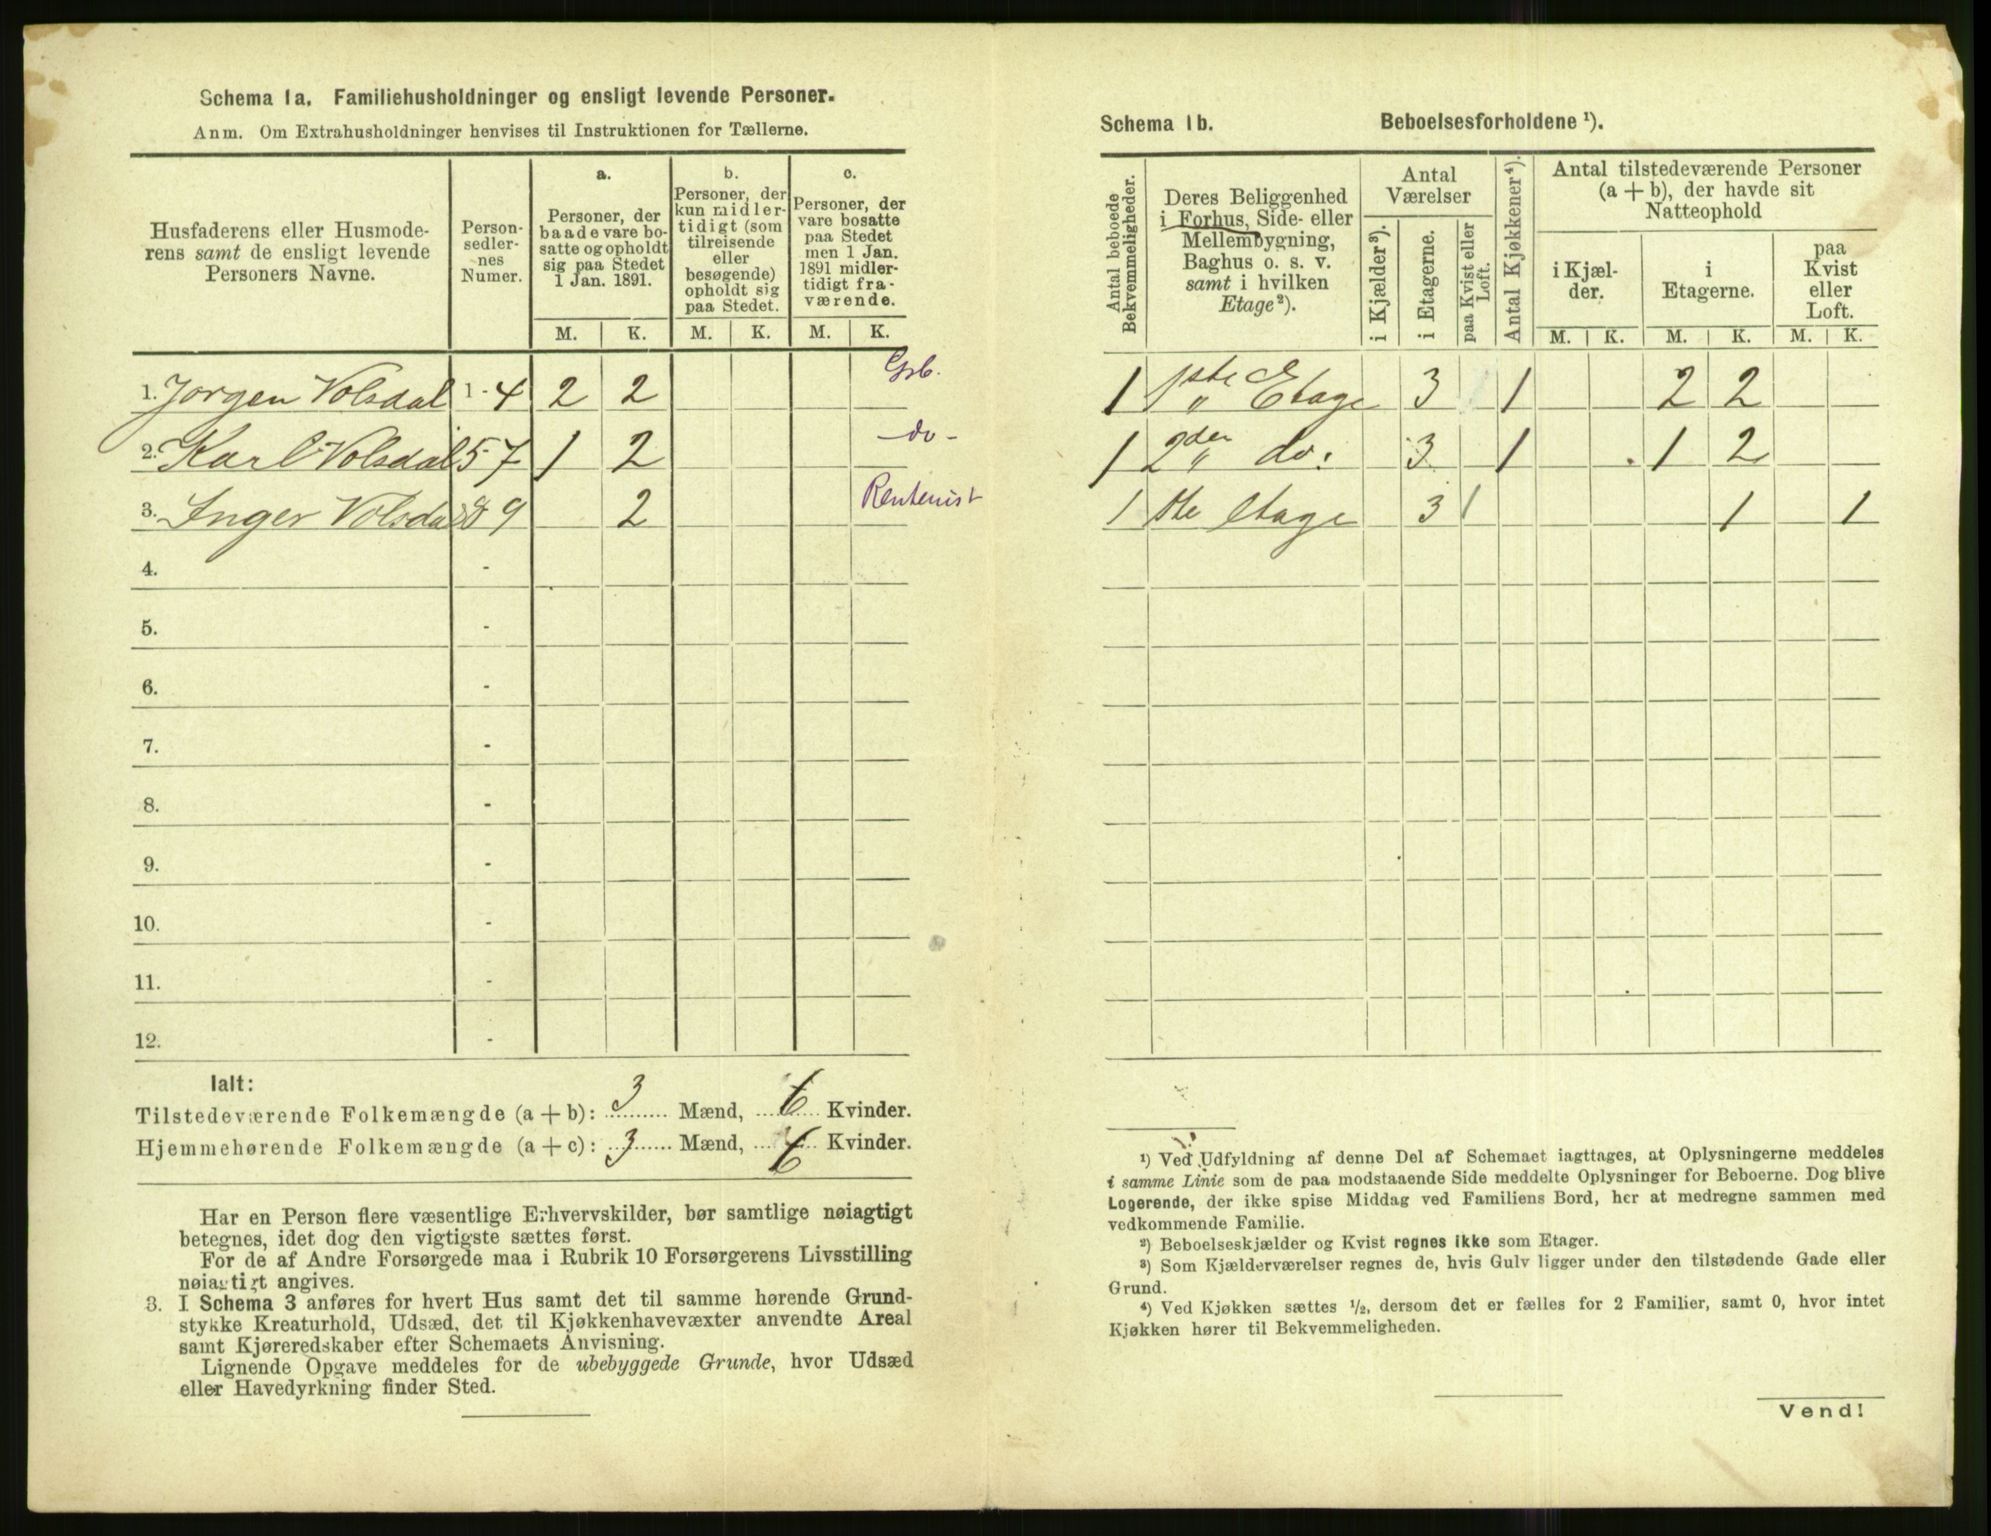 Schema 1a. Familiehusholdninger og ensligt levende Personer.
Anm. Om Extrahusholdninger henvises til Instruktionen for Tællerne.
Husfaderens eller Husmoderens samt de ensligt levende Personers Navne.
Personsedlernes Numer.
a.
Personer, der baade vare bosatte og opholdt sig paa Stedet 1 Jan. 1891.
b.
Personer, der kun midlertidigt (som tilreisende eller besøgende) opholdt sig paa Stedet.
c.
Personer, der vare bosatte paa Stedet men 1 Jan. 1891 midlertidigt fraværende.
M. K. M. K. M. K.
1. Jorgen Volsdal 1-4 2 2 Grb.
2. Karl Volsdal 5-7 1 2 -do-
3. Inger Volsdal 8-9 2 Rentenist
4. -
5. -
6. -
7. -
8. -
9. -
10. -
11. -
12. -
Ialt:
Tilstedeværende Folkemængde (a + b): 3 Mænd, 6 Kvinder.
Hjemmehørende Folkemængde (a + c): 3 Mænd, 6 Kvinder.
Har en Person flere væsentlige Erhvervskilder, bør samtlige nøiagtigt
betegnes, idet dog den vigtigste sættes først.
For de af Andre Forsørgede maa i Rubrik 10 Forsørgerens Livsstilling
nøiagtigt angives.
3. I Schema 3 anføres for hvert Hus samt det til samme hørende Grund-
stykke Kreaturhold, Udsæd, det til Kjøkkenhavevæxter anvendte Areal
samt Kjøreredskaber efter Schemaets Anvisning.
Lignende Opgave meddeles for de ubebyggede Grunde, hvor Udsæd
eller Havedyrkning finder Sted.
Schema 1b. Beboelsesforholdene ¹).
Antal beboede Bekvemmeligheder.
Deres Beliggenhed i Forhus, Side- eller Mellembygning, Baghus o. s. v. samt i hvilken Etage²).
Antal Værelser
i Kjælder³).
i Etagerne.
paa Kvist eller Loft.
Antal Kjøkkener⁴).
Antal tilstedeværende Personer (a + b), der havde sit Natteophold
i Kjælder.
i Etagerne.
paa Kvist eller Loft.
M. K. M. K. M. K.
1 1ste " Etage 3 1 2 2
1 2den " do: 3 1 1 2
1 1ste Etage 3 1 1 1
¹) Ved Udfyldning af denne Del af Schemaet iagttages, at Oplysningerne meddeles
i samme Linie som de paa modstaaende Side meddelte Oplysninger for Beboerne. Dog blive
Logerende, der ikke spise Middag ved Familiens Bord, her at medregne sammen med
vedkommende Familie.
²) Beboelseskjælder og Kvist regnes ikke som Etager.
³) Som Kjælderværelser regnes de, hvis Gulv ligger under den tilstødende Gade eller
Grund.
⁴) Ved Kjøkken sættes ½, dersom det er fælles for 2 Familier, samt 0, hvor intet
Kjøkken hører til Bekvemmeligheden.
Vend!